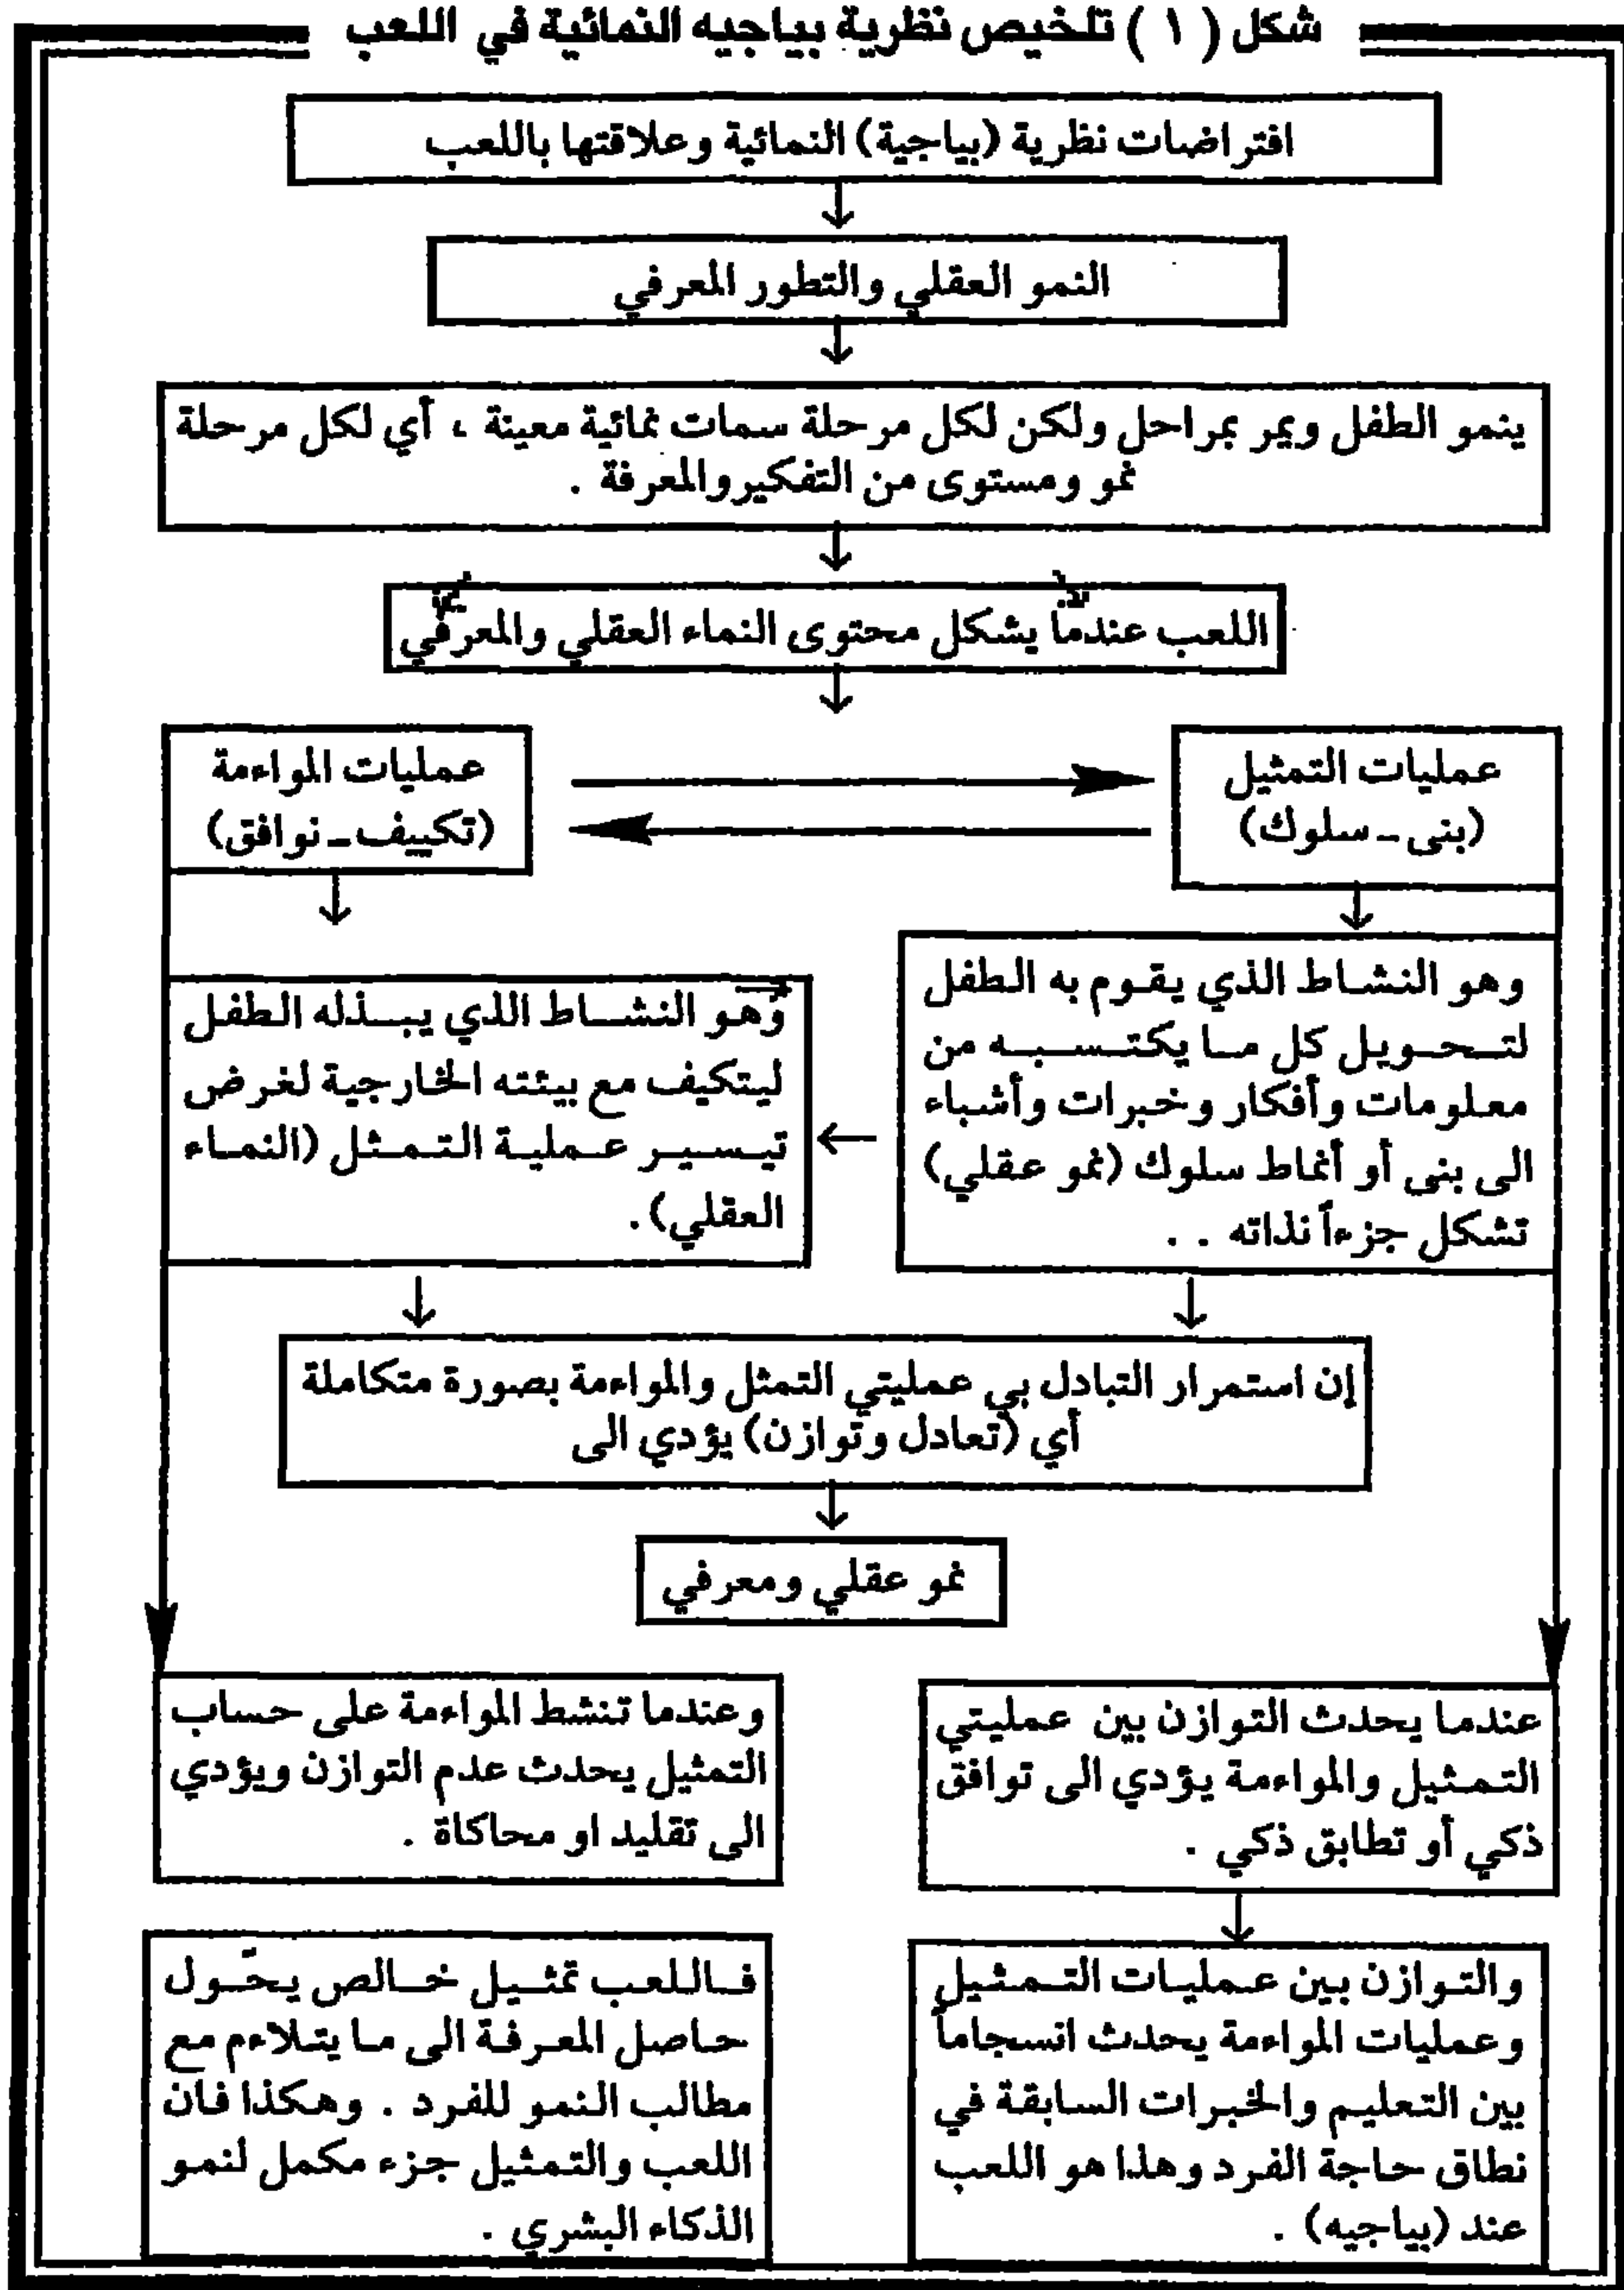 شكل ( ١ ) تلخيص نظرية بياجيه النمائية في اللعب
افتراضات نظرية (بياجية) النمائية وعلاقتها باللعب
النمو العقلي والتطور المعرفي
ينمو الطفل ويمر بمراحل ولكن لكل مرحلة سمات نمائية معينة ، أي لكل مرحلة
نمو ومستوى من التفكير والمعرفة .
اللعب عندما يشكل محتوى النماء العقلي والمعرفي
عمليات التمثيل
(بنى - سلوك)
عمليات المواءمة
(تكييف - نوافق)
وهو النشاط الذي يقوم به الطفل
لتحويل كل ما يكتسبه من
معلومات وأفكار وخبرات وأشباء
الى بنى أو أنماط سلوك (نمو عقلي)
تشكل جزءاً نذاته . .
وهو النشاط الذي يبذله الطفل
ليتكيف مع بيئته الخارجية لغرض
تيسير عملية التمثل (النماء
العقلي) .
إن استمرار التبادل بي عمليتي التمثل والمواءمة بصورة متكاملة
أي (تعادل وتوازن) يؤدي الى
نمو عقلي ومعرفي
عندما يحدث التوازن بين عمليتي
التمثيل والمواءمة يؤدي الى توافق
ذكي أو تطابق ذكي .
وعندما تنشط المواءمة على حساب
التمثيل يحدث عدم التوازن ويؤدي
الى تقليد او محاكاة .
والتوازن بين عمليات التمثيل
وعمليات المواءمة يحدث انسجاماً
بين التعليم والخبرات السابقة في
نطاق حاجة الفرد وهذا هو اللعب
عند (بياجيه) .
فاللعب تمثيل خالص يحّول
حاصل المعرفة الى ما يتلاءم مع
مطالب النمو للفرد . وهكذا فان
اللعب والتمثيل جزء مكمل لنمو
الذكاء البشري .